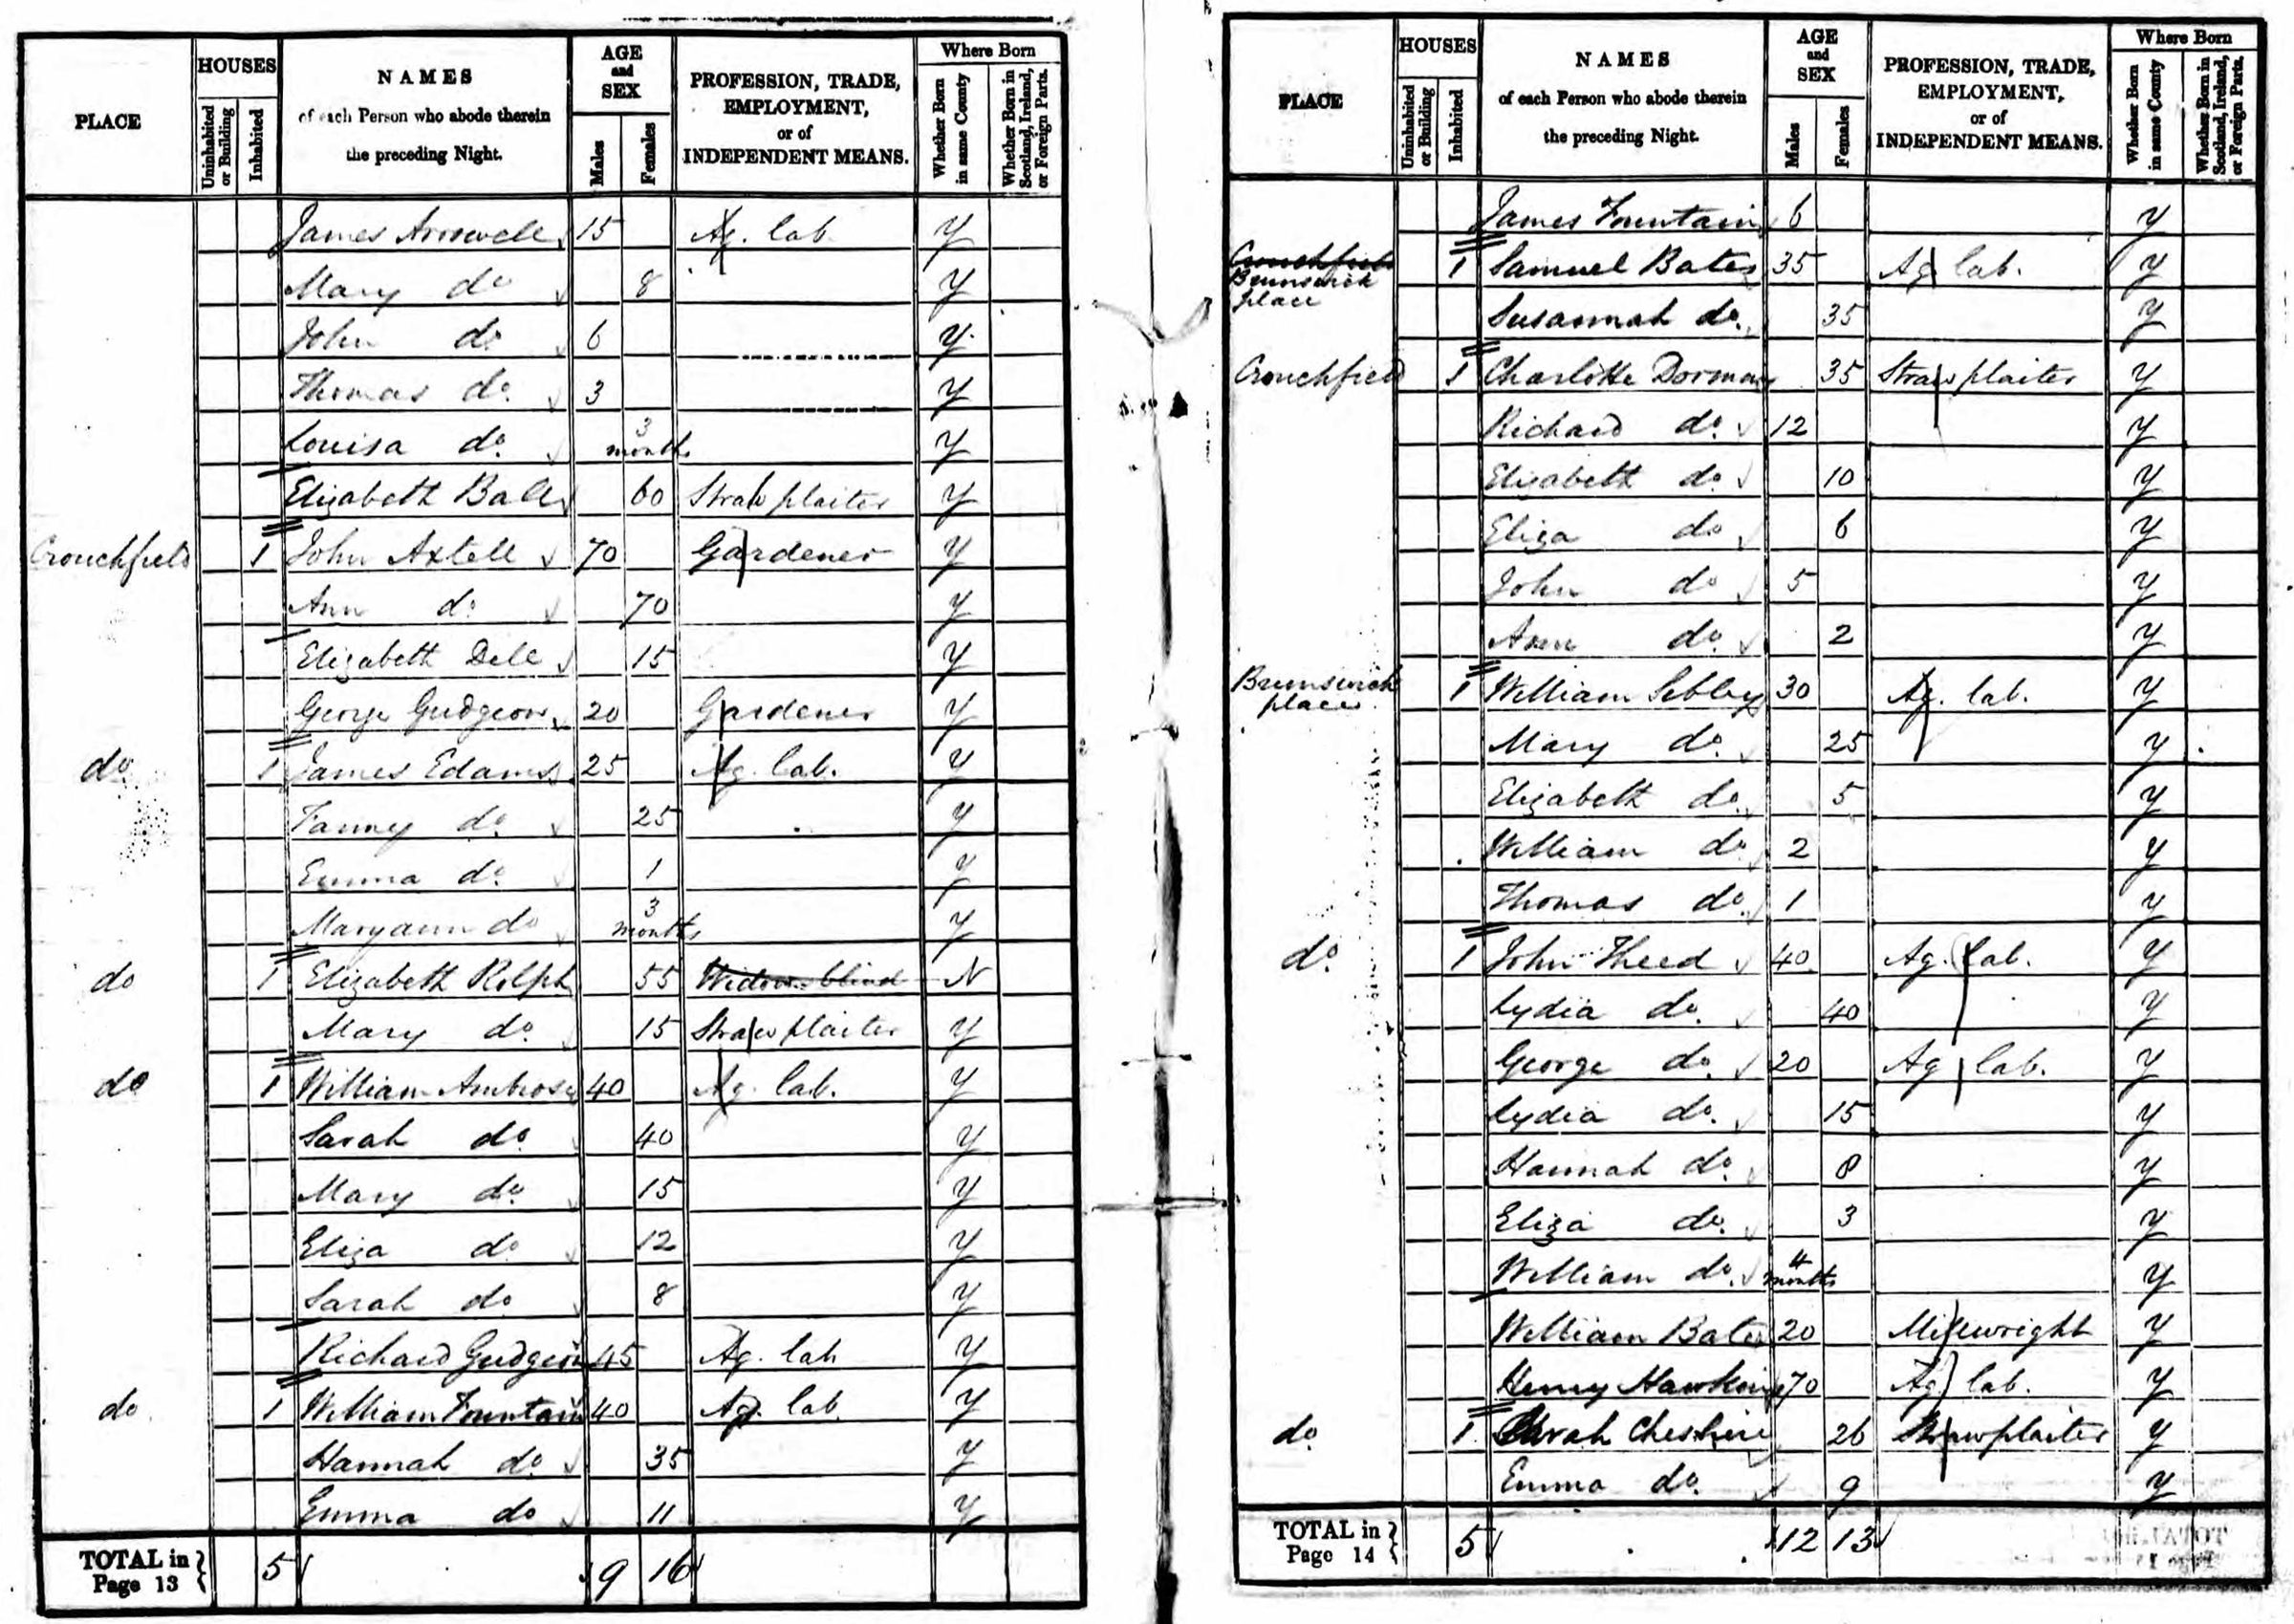 PLACE HOUSES Uninhabited or Building Inhabited NAMES of each Person who abode therein the preceding Night. AGE and SEX Males Females PROFESSION, TRADE, EMPLOYMENT, or of INDEPENDENT MEANS. Where Born Whether Born in same County Whether Born in Scotland, Ireland, or Foreign Parts.
James 15 Ag. lab. Y
Mary do 8 Y
John do 6 Y
Thomas do. 3 Y
Louisa do. 3 months Y
Elizabeth 60 Straw plaiter Y
Crouchfield 1 John Axtell 70 Gardener Y
Ann do 70 Y
Elizabeth Dell 15 Y
George Gudgeon 20 Gardener Y
do. 1 James Edams 25 Ag. lab. Y
Fanny do. 25 Y
Emma do. 1 Y
Maryann do 3 months Y
do 1 Elizabeth Rolph 55 Widow blind N
Mary do. 15 Straw plaiter Y
do 1 William Ambrose 40 Ag. lab. Y
Sarah do. 40 Y
Mary do. 15 Y
Eliza do 12 Y
Sarah do 8 Y
Richard Gudgeon 45 Ag. lab Y
do 1 William Fountain 40 Ag. lab. Y
Hannah do. 35 Y
Emma do 11 Y
TOTAL in Page 13 5 9 16
PLACE HOUSES Uninhabited or Building Inhabited NAMES of each Person who abode therein the preceding Night. AGE and SEX Males Females PROFESSION, TRADE, EMPLOYMENT, or of INDEPENDENT MEANS. Where Born Whether Born in same County Whether Born in Scotland, Ireland, or Foreign Parts.
James Fountain 6 Y
Crouchfield Brunswick place 1 Samuel Bates 35 Ag. lab. Y
Susannah do. 35 Y
Crouchfield 1 Charlotte Dorman 35 Straw plaiter Y
Richard do. 12 Y
Elizabeth do. 10 Y
Eliza do 6 Y
John do 5 Y
Ann do. 2 Y
Brunswick place 1 William Sibley 30 Ag. lab. Y
Mary do. 25 Y
Elizabeth do. 5 Y
William do. 2 Y
Thomas do. 1 Y
do. 1 John Theed 40 Ag. lab. Y
Lydia do. 40 Y
George do. 20 Ag lab. Y
Lydia do. 15 Y
Hannah do. 8 Y
Eliza do. 3 Y
William do. 4 months Y
William Bates 20 Millwright Y
Henry Hawkins 70 Ag. lab. Y
do. 1 Sarah Cheshire 26 Straw plaiter Y
Emma do. 9 Y
TOTAL in Page 14 5 12 13